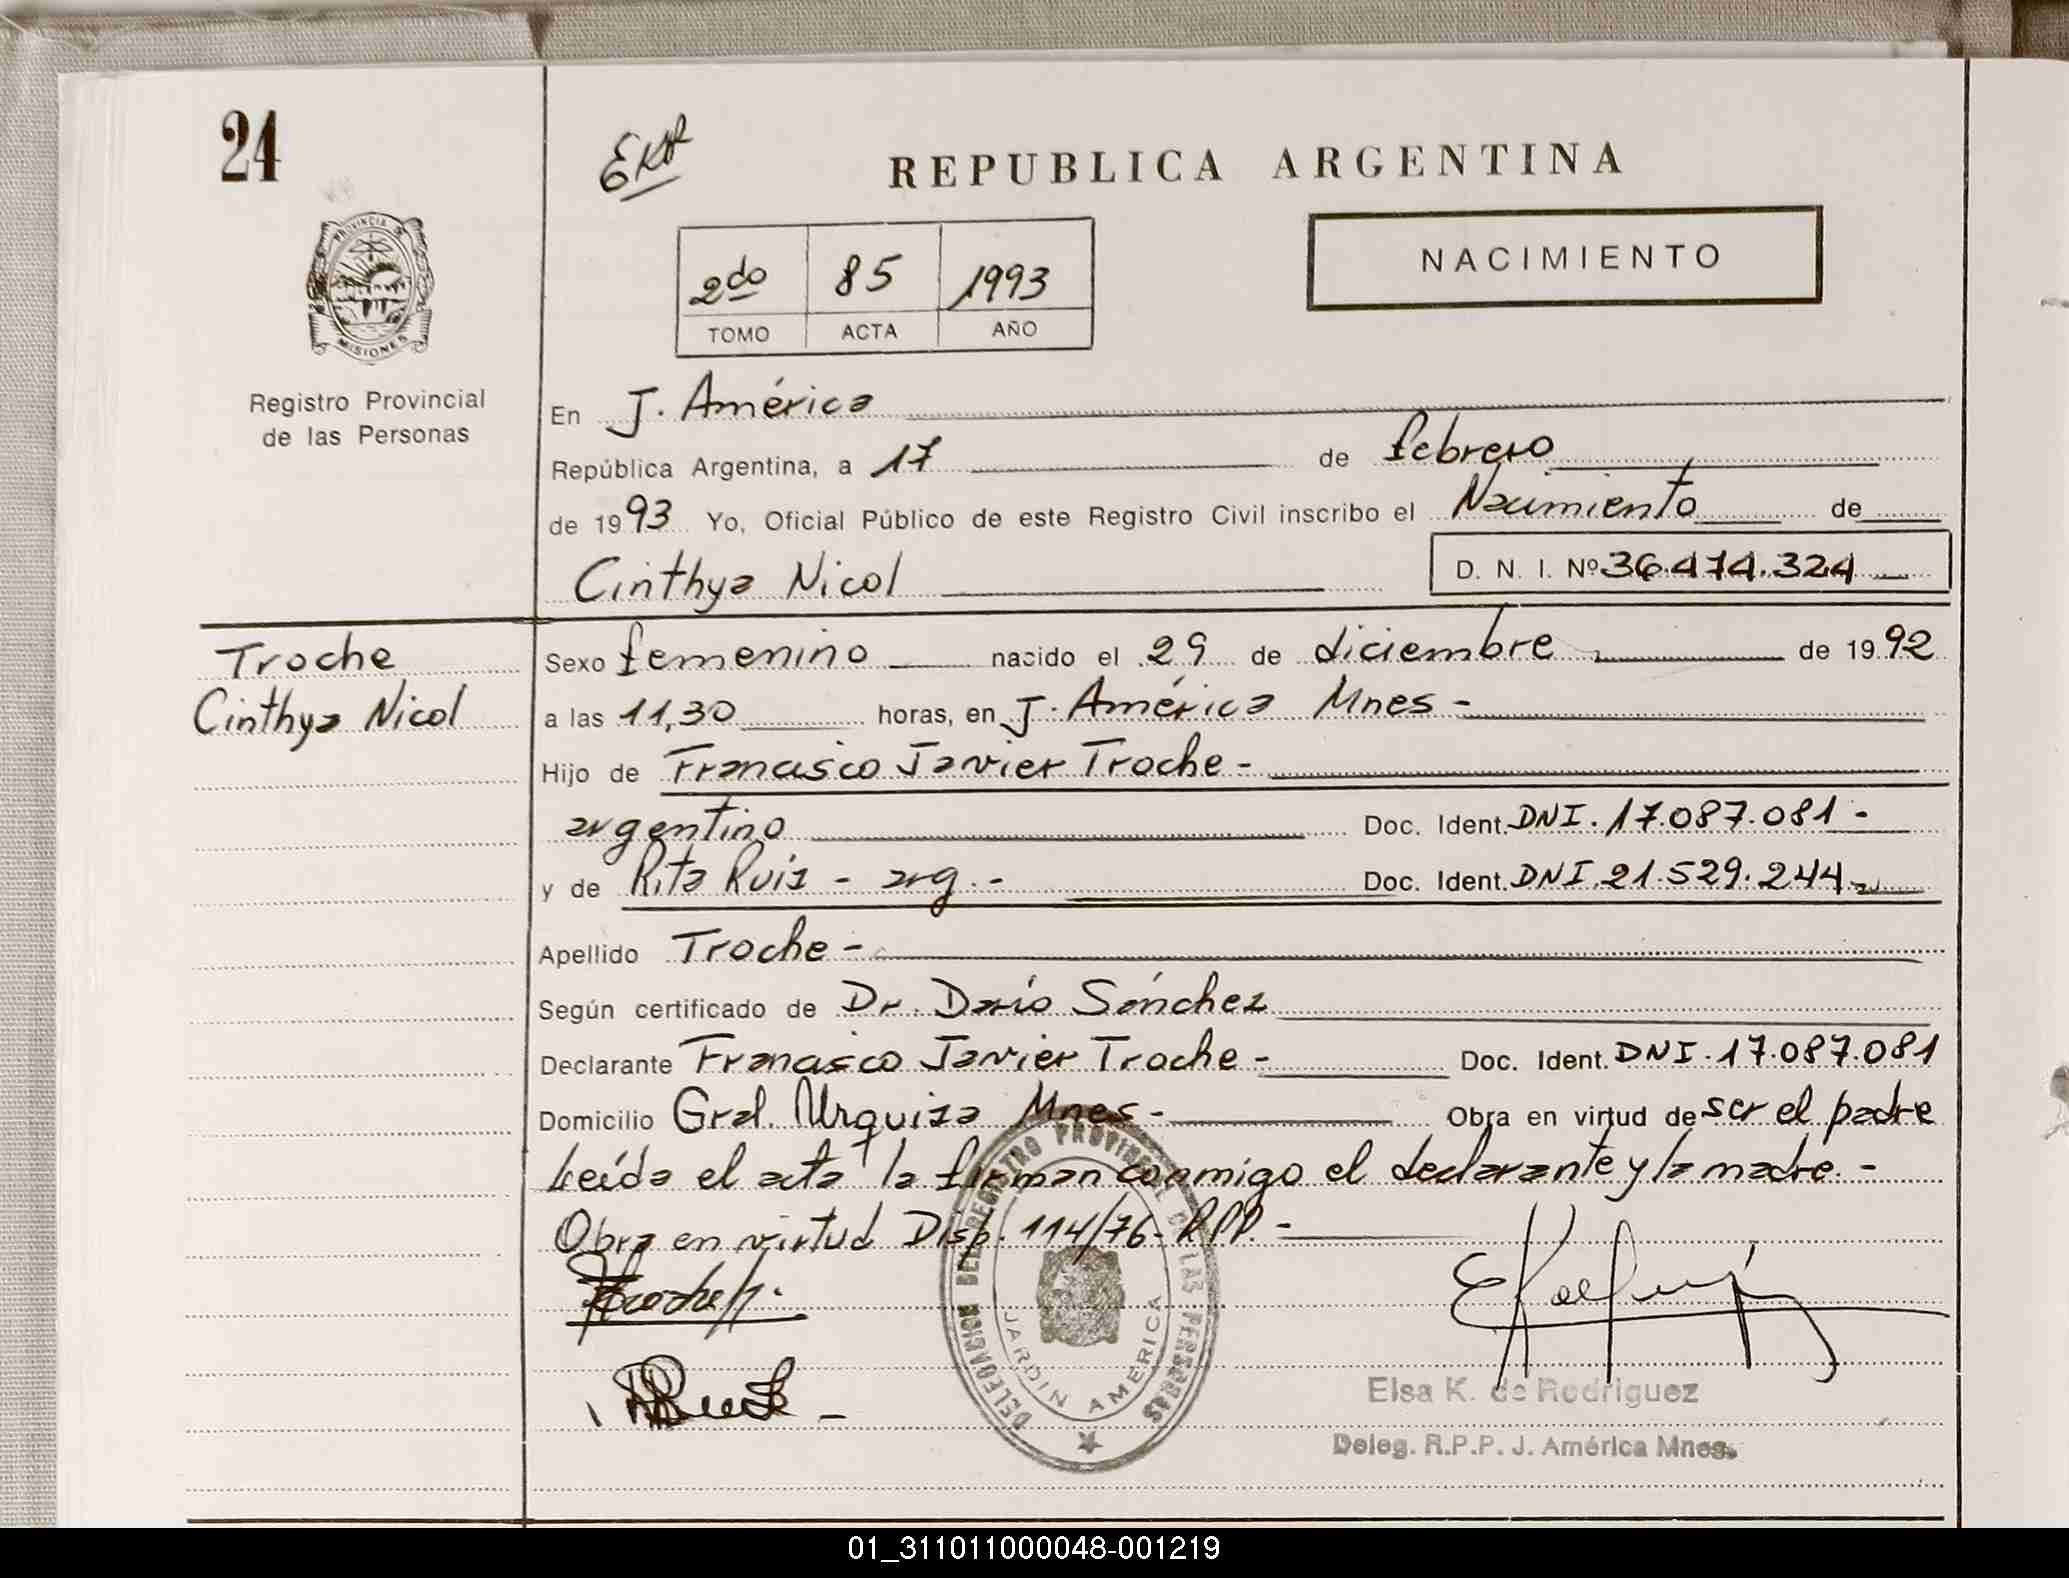 24
EKR
REPUBLICA ARGENTINA
PROVINCIA DE
MISIONES
2do 85 1993
TOMO ACTA AÑO
NACIMIENTO
Registro Provincial
de las Personas
En J. América
República Argentina, a 17 de febrero
de 1993 Yo, Oficial Público de este Registro Civil inscribo el Nacimiento de
Cinthya Nicol D. N. I. Nº 36.474.324
Troche
Cinthya Nicol
Sexo femenino nacido el 29 de diciembre de 1992
a las 11,30 horas, en J. América Mnes -
Hijo de Francisco Javier Troche -
argentino Doc. Ident. DNI. 17.087.081 -
y de Rita Ruiz - arg. - Doc. Ident. DNI. 21.529.244
Apellido Troche -
Según certificado de Dr. Darío Sánchez
Declarante Francisco Javier Troche - Doc. Ident. DNI. 17.087.081
Domicilio Gral. Urquiza Mnes - Obra en virtud de ser el padre
Leída el acta la firman conmigo el declarante y la madre. -
Obra en virtud Disp. 114/76 - RPP. -
DELEGACION DEL REGISTRO PROVINCIAL DE LAS PERSONAS
JARDIN AMERICA
Elsa K. de Rodriguez
Deleg. R.P.P. J. América Mnes.
01_311011000048-001219